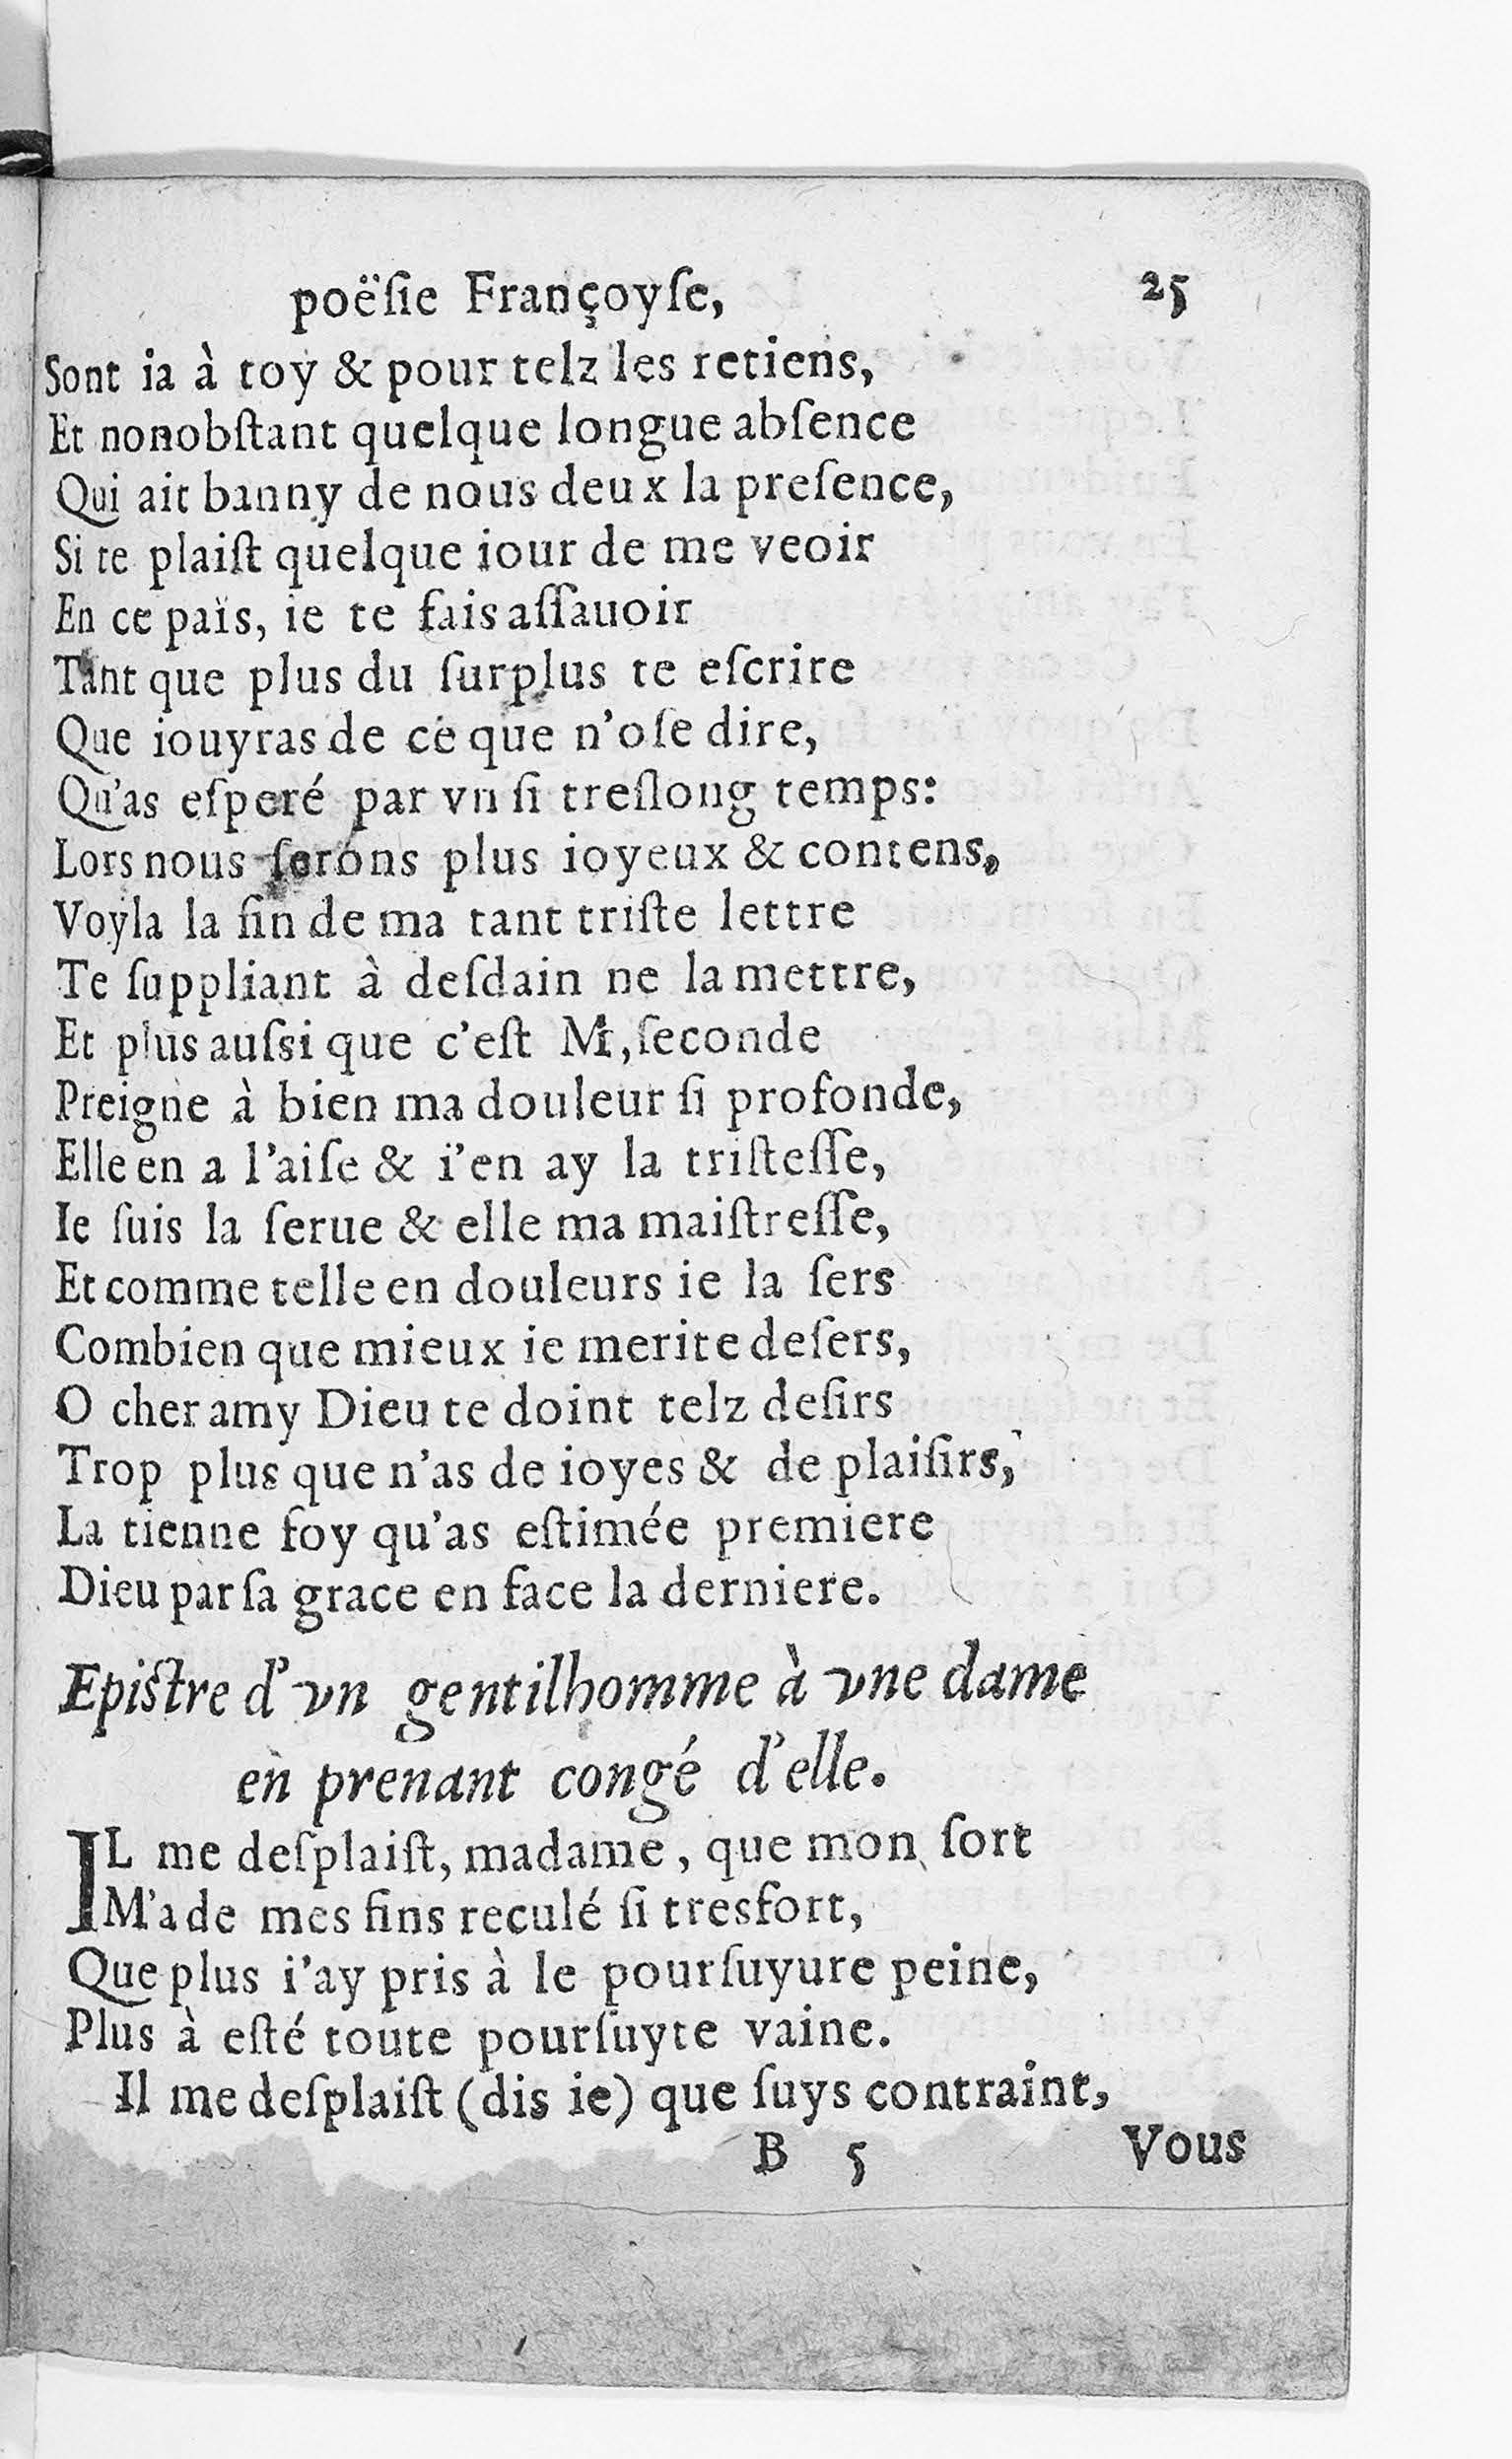 poëſie Françoyſe, 25
Sont ia à toy & pour telz les retiens,
Et nonobſtant quelque longue abſence
Qui ait banny de nous deux la preſence,
Si te plaiſt quelque iour de me veoir
En ce païs, ie te fais aſſauoir
Tant que plus du ſurplus te eſcrire
Que iouyras de ce que n'oſe dire,
Qu'as eſperé par vn ſi treſlong temps:
Lors nous ſerons plus ioyeux & contens,
Voyla la fin de ma tant triſte lettre
Te ſuppliant à deſdain ne la mettre,
Et plus auſsi que c'eſt M, ſeconde
Preigne à bien ma douleur ſi profonde,
Elle en a l'aiſe & i'en ay la triſteſſe,
Ie ſuis la ſerue & elle ma maiſtreſſe,
Et comme telle en douleurs ie la ſers
Combien que mieux ie merite deſers,
O cher amy Dieu te doint telz deſirs
Trop plus que n'as de ioyes & de plaiſirs,
La tienne foy qu'as eſtimée premiere
Dieu par ſa grace en face la derniere.
Epiſtre d'vn gentilhomme à vne dame
en prenant congé d'elle.
IL me deſplaiſt, madame, que mon ſort
M'a de mes fins reculé ſi tresfort,
Que plus i'ay pris à le pourſuyure peine,
Plus à eſté toute pourſuyte vaine.
Il me deſplaiſt (dis ie) que ſuys contraint,
B 5 Vous